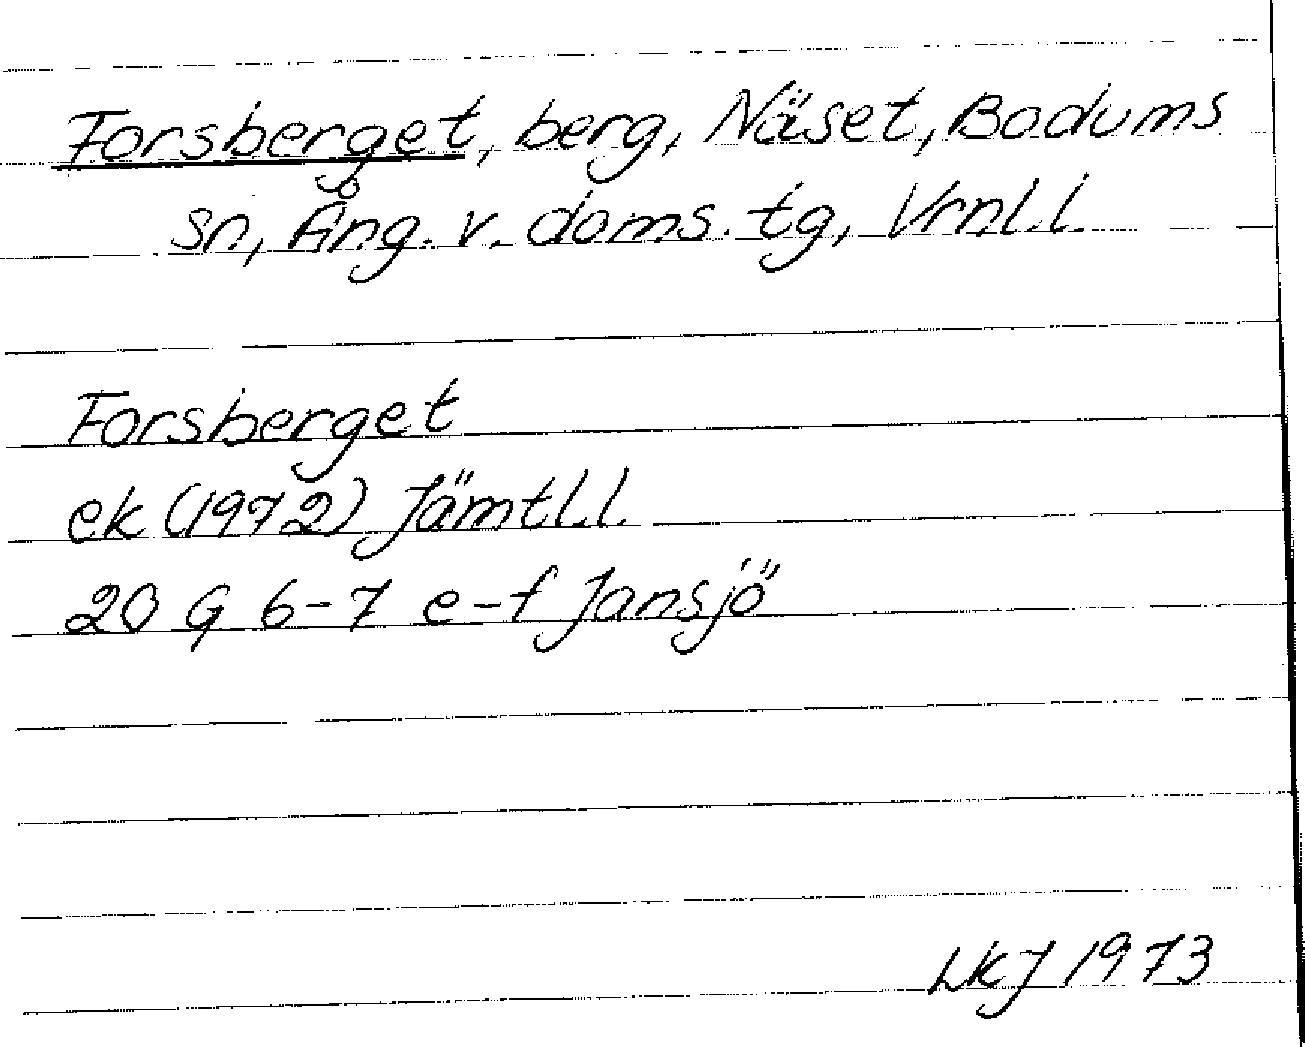 Forsberget, berg, Näset, Bodums
sn, Ång. v. doms. tg, Vrnl.l.
Forsberget
ek (1972) Jämtl.l.
20 G 6-7 e-f Jansjö
LkJ 1973